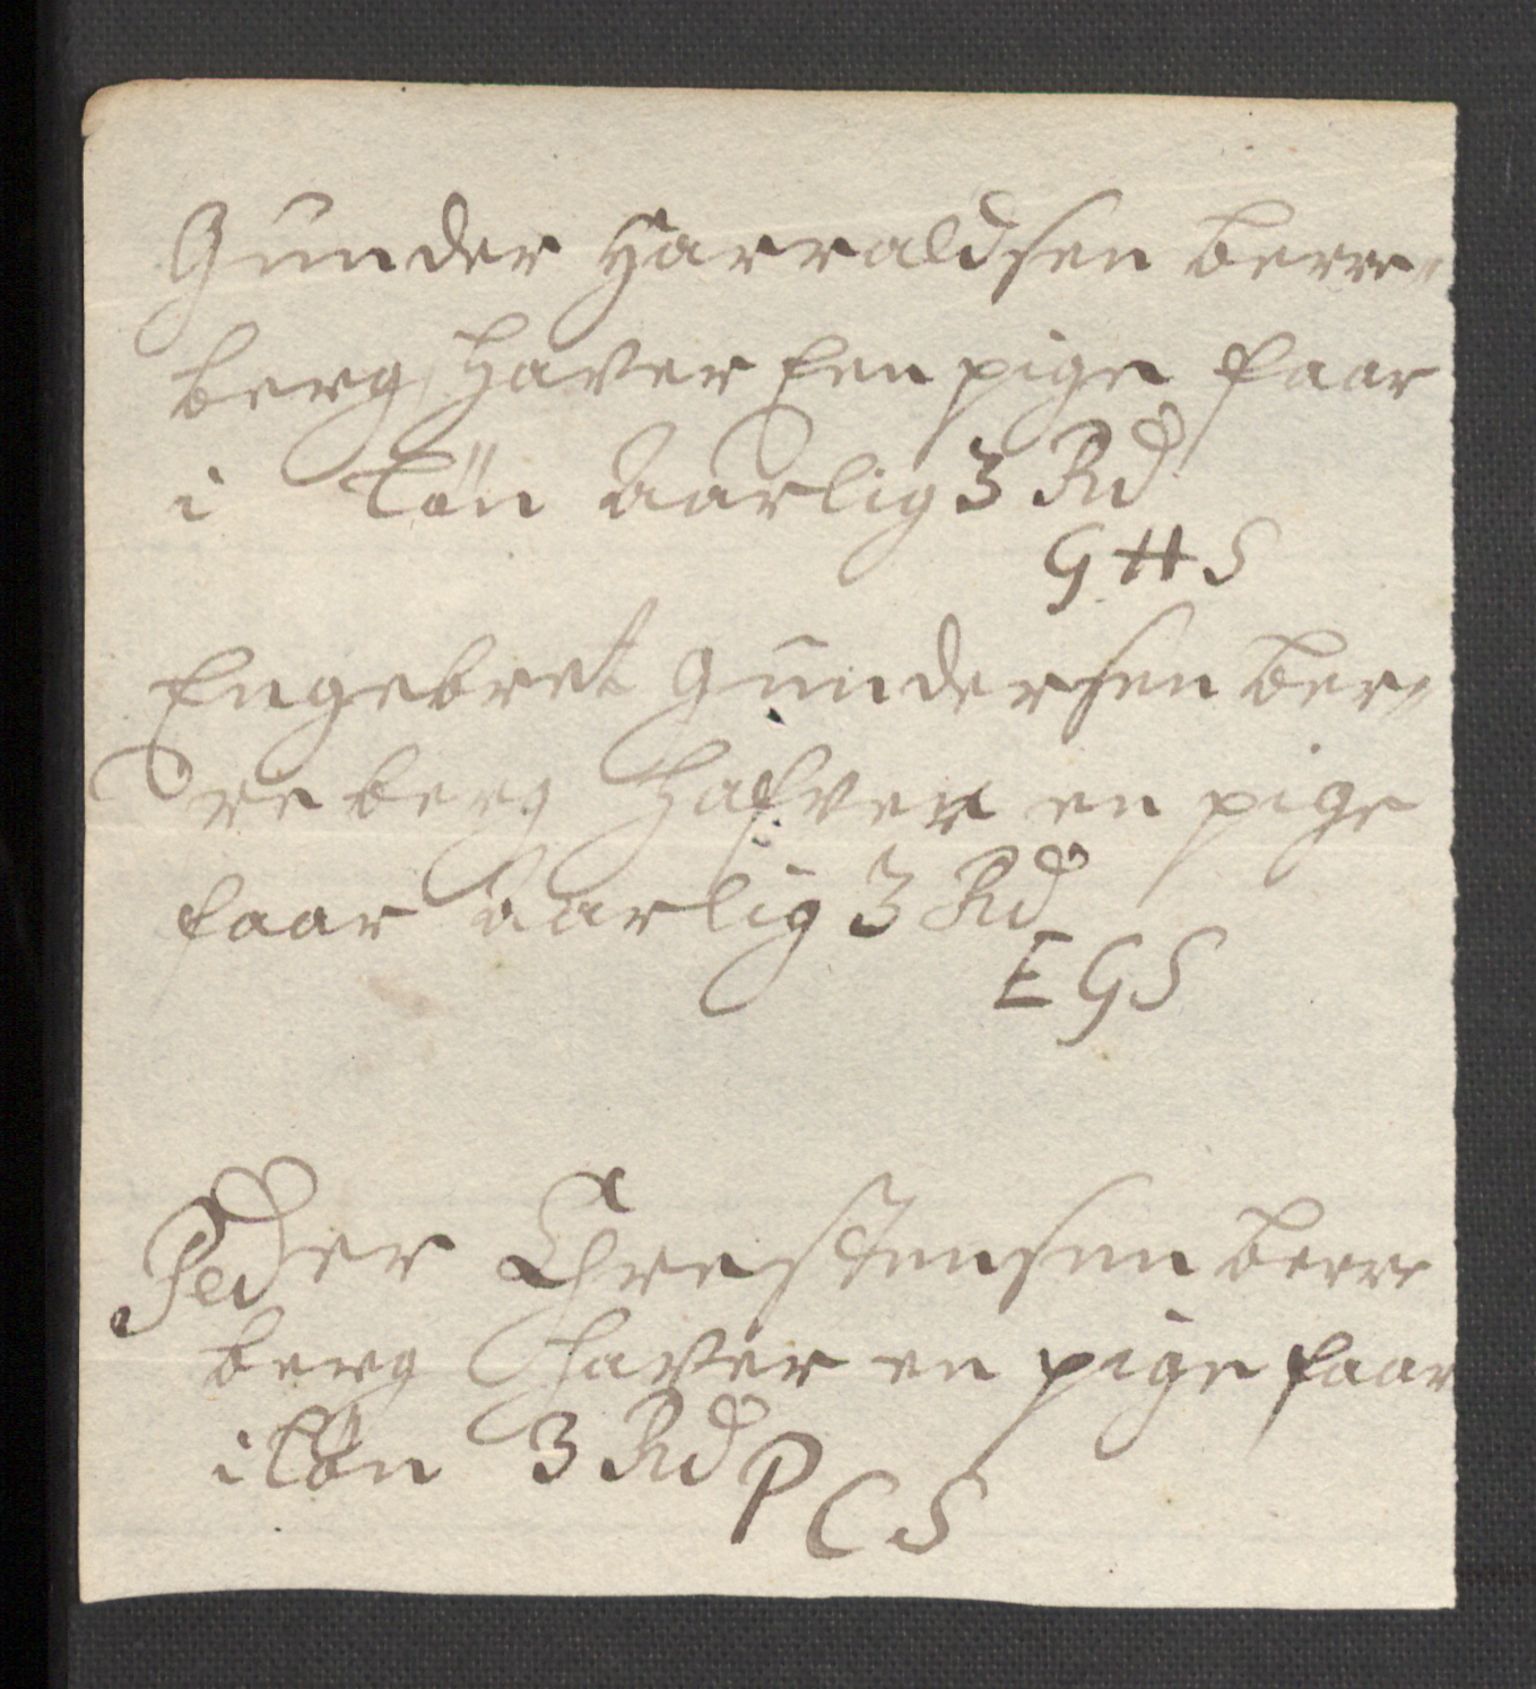 Gunder Harraldsen berre-
berg, Haver Een pige faar
i Løn Aarlig 3 Rd
GHS
Engebret Gundersen ber-
re berg Hafver en pige
faar Aarlig 3 Rd
EGS
Peder Chrestensen berre
berg Haver en pige faar
i løn 3 Rd PCS